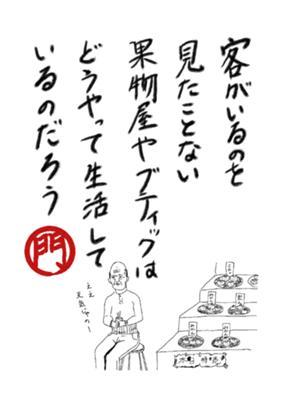 客がいるのを
見たことない
果物屋やブティックは
どうやって生活して
いるのだろう
門
ええ
天気やのー